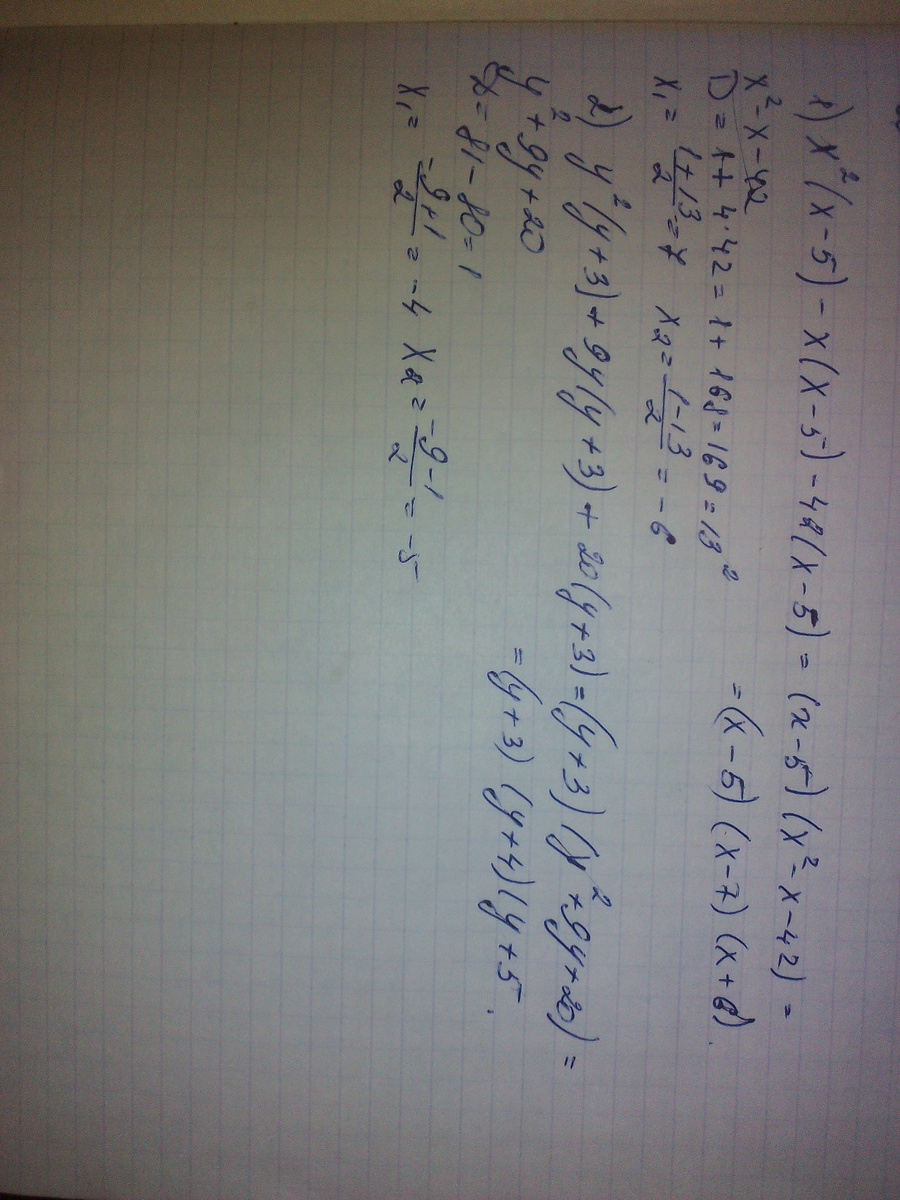 1) x²(x-5) - x(x-5) - 42(x-5) = (x-5)(x²-x-42) =
x²-x-42
= (x-5)(x-7)(x+6).
D = 1+4·42 = 1+168 = 169 = 13²
x₁ = (1+13)/2 = 7 x₂ = (1-13)/2 = -6
2) y²(y+3) + 9y(y+3) + 20(y+3) = (y+3)(y²+9y+20) =
y²+9y+20
= (y+3)(y+4)(y+5.
D = 81-80 = 1
x₁ = (-9+1)/2 = -4 x₂ = (-9-1)/2 = -5